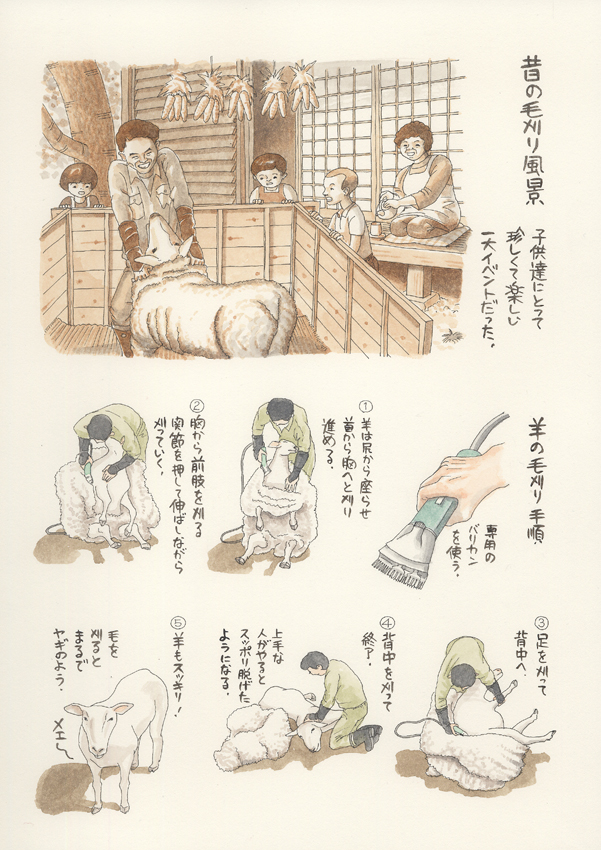 昔の毛刈り風景
子供達にとって
珍しくて楽しい
一大イベントだった。
羊の毛刈り手順
専用の
バリカン
を使う。
①
羊は尻から座らせ
首から胸へと刈り
進める。
②
胸から前肢を刈る
関節を押して伸ばしながら
刈っていく。
③
足を刈って
背中へ。
④
背中を刈って
終了。
上手な
人がやると
スッポリ脱げた
ようになる。
⑤
羊もスッキリ!
毛を
刈ると
まるで
ヤギのよう。
メェ〜